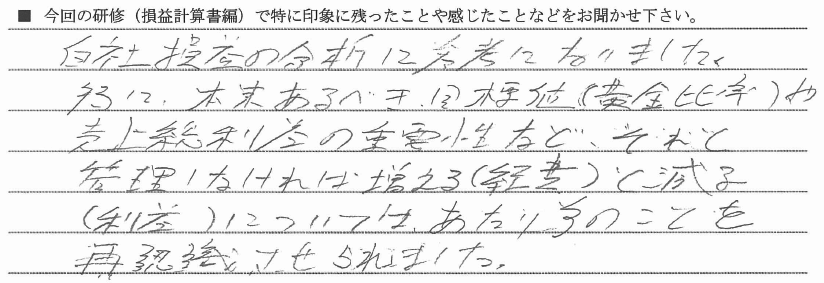 ■ 今回の研修（損益計算書編）で特に印象に残ったことや感じたことなどをお聞かせ下さい。
自社損益の分析に参考になりました。
特に、本来あるべき目標値（黄金比率）や
売上総利益の重要性など、それと
管理しなければ増える（経費）と減る
（利益）については、あたり前のことを
再認識させられました。